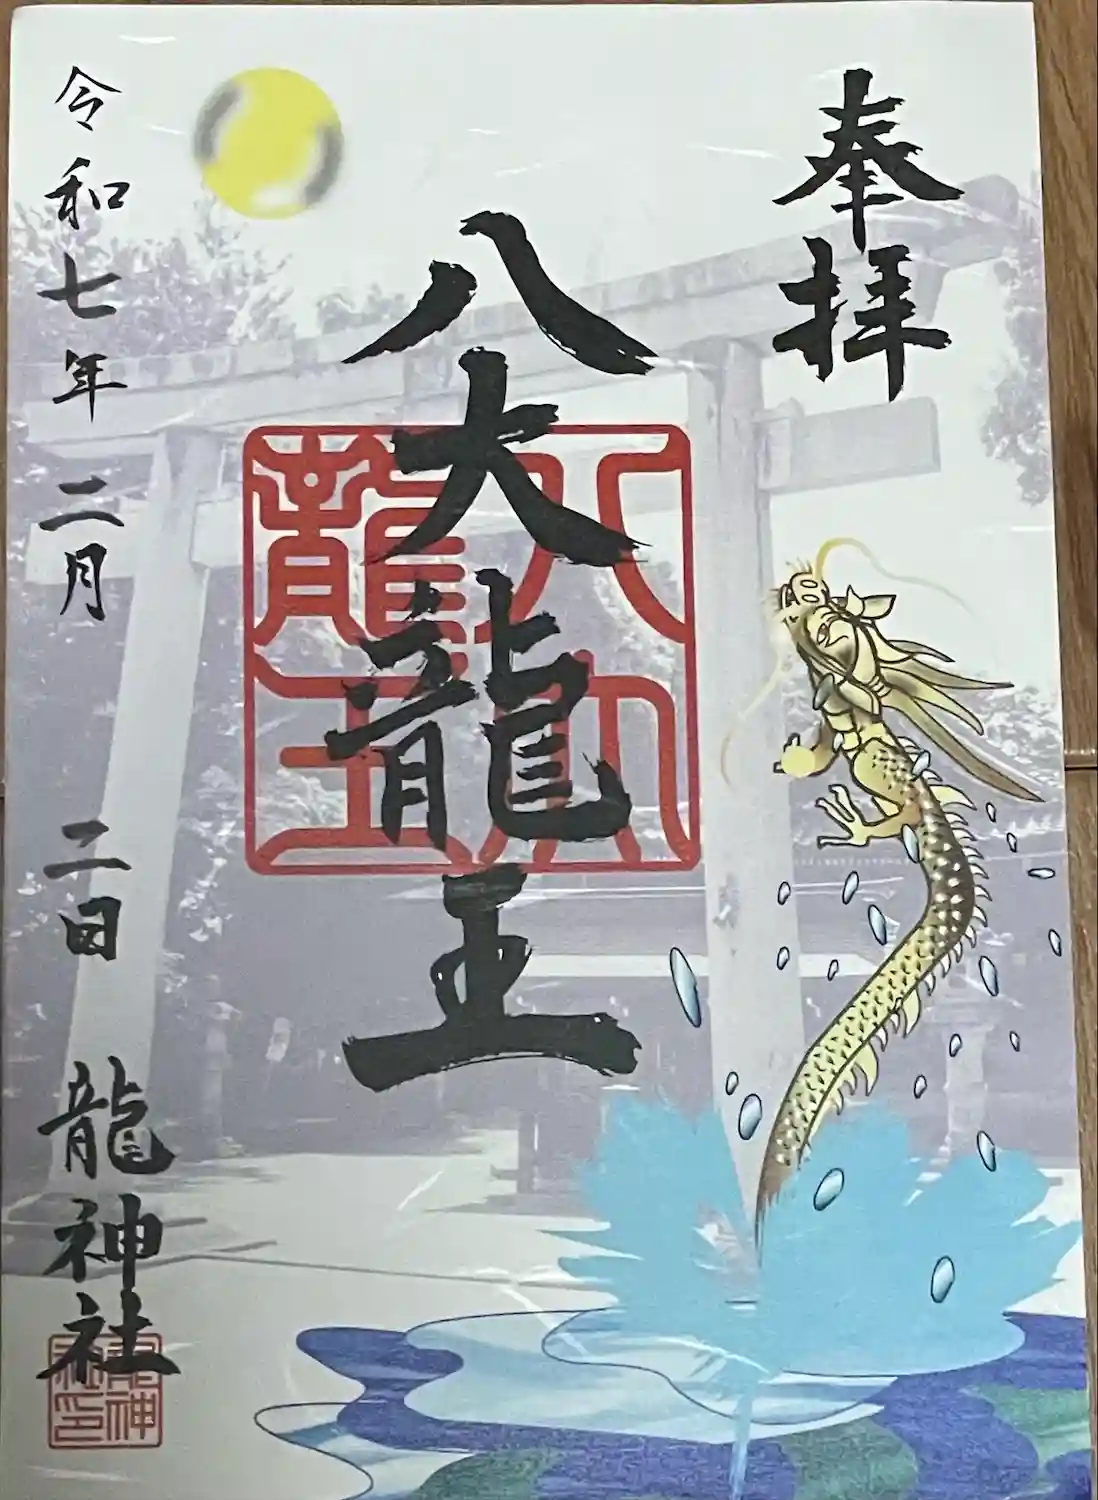 奉拝
八大龍王
八大龍王
令和七年二月二日
龍神社
龍神社印